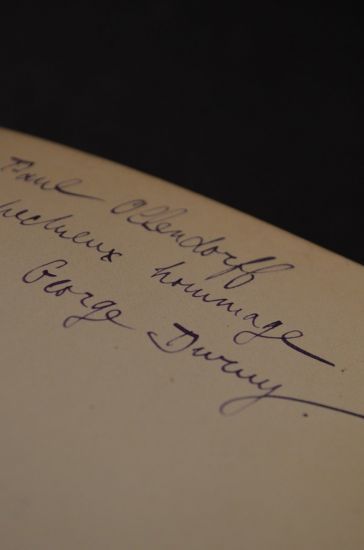 Paul Ollendorff
pectueux hommage
George Duruy